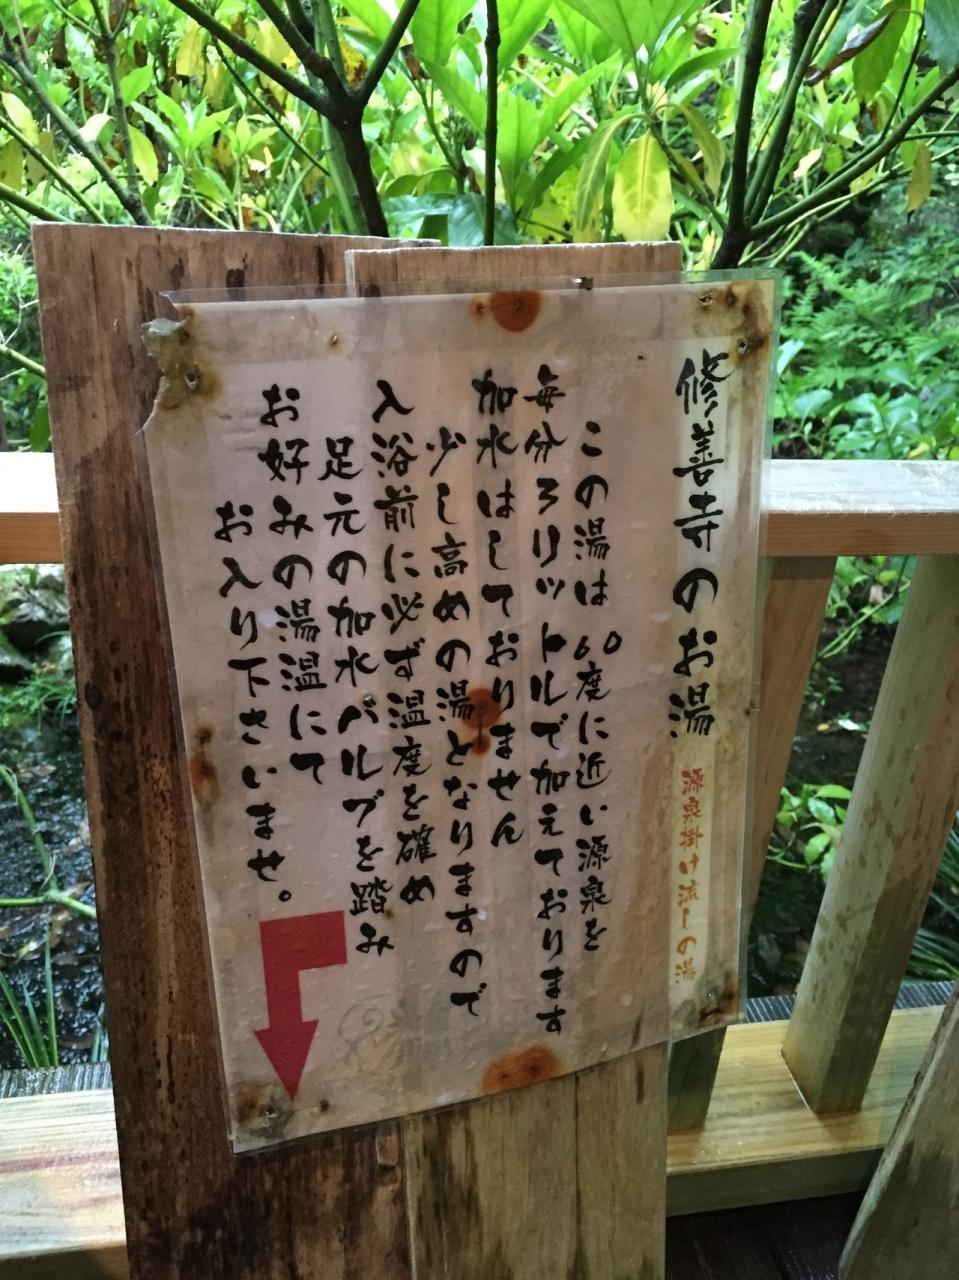 修善寺のお湯 源泉掛け流しの湯
この湯は60度に近い源泉を
毎分3リットルで加えております
加水はしておりません
少し高めの湯となりますので
入浴前に必ず温度を確め
足元の加水バルブを踏み
お好みの湯温にて
お入り下さいませ。